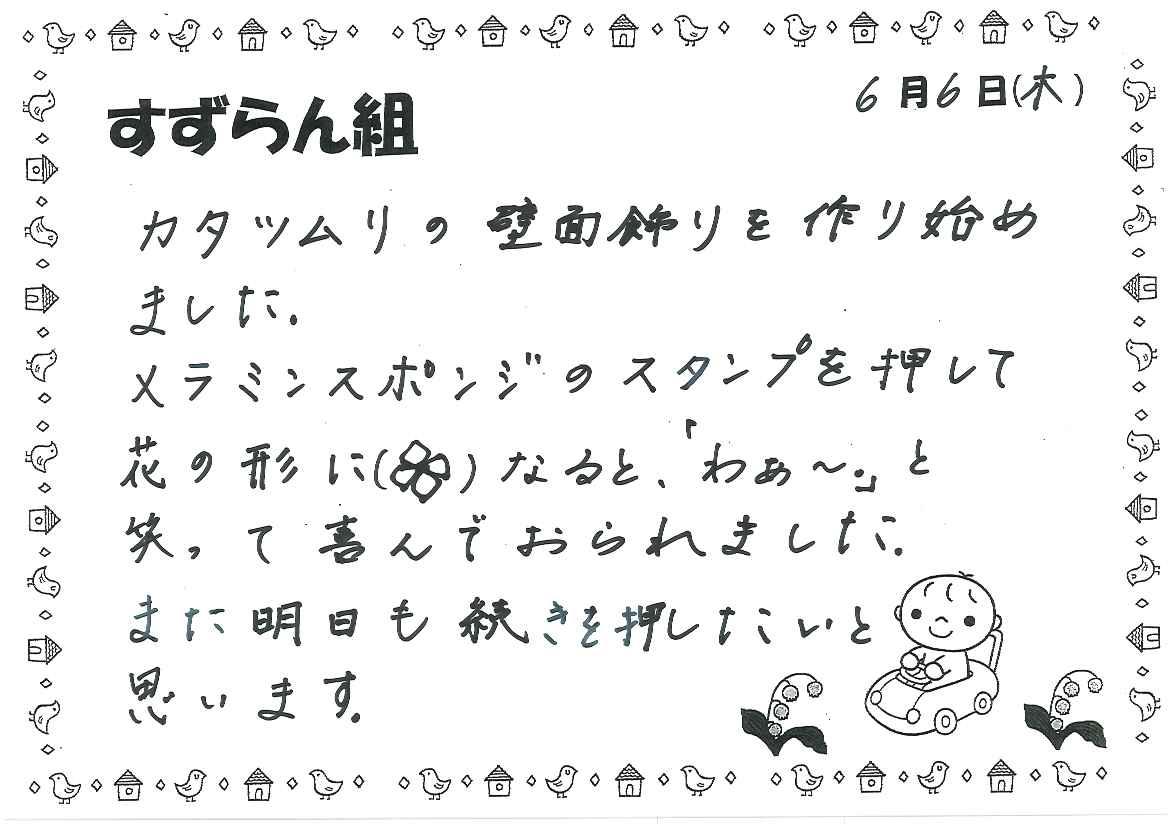 6月6日(木)
すずらん組
カタツムリの壁面飾りを作り始め
ました。
メラミンスポンジのスタンプを押して
花の形に( )なると、「わぁ〜。」と
笑って喜んでおられました。
また明日も続きを押したいと
思います。